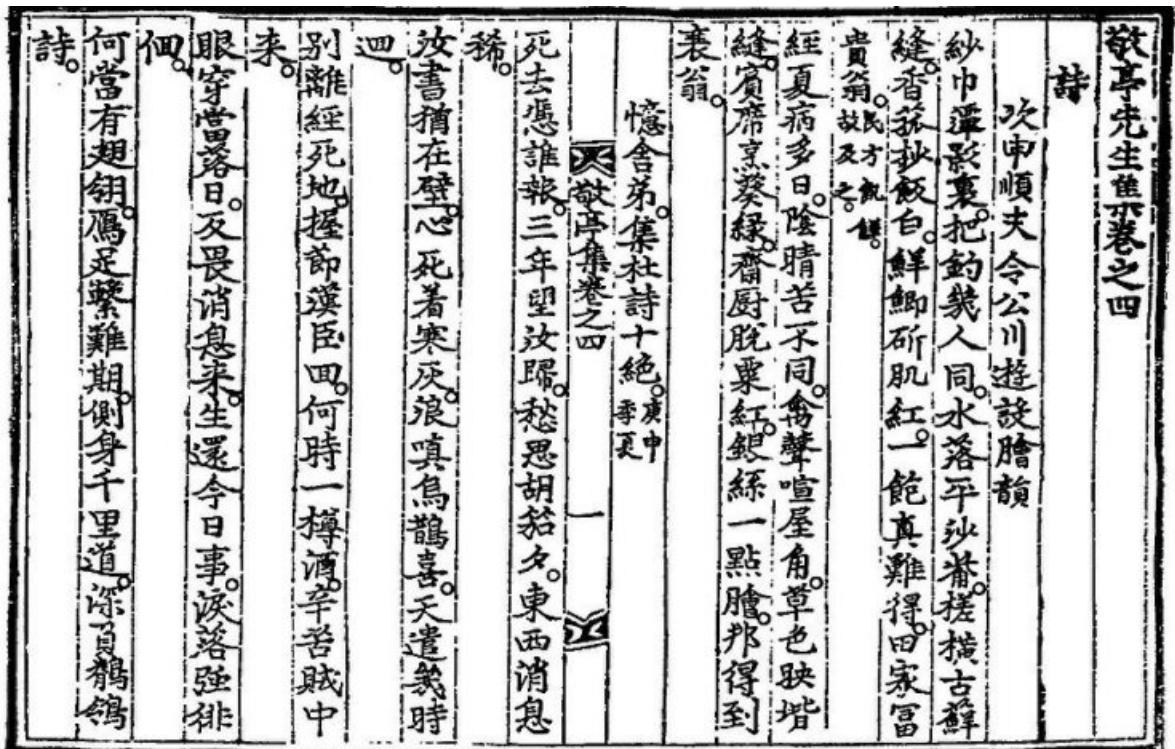 敬亭先生集卷之四
詩
次申順夫令公川遊設膾韻
紗巾蘸影裏。把釣幾人同。水落平沙觜。槎橫古蘚
縫。香菰抄飯白。鮮鯽斫肌紅。一飽眞難得。田家富
貴翁。民方飢饉。故及之。
經夏病多日。陰晴苦不同。禽聲喧屋角。草色映堦
縫。賓席烹葵綠。齋厨脫粟紅。銀絲一點膾。那得到
衰翁。
憶舍弟。集杜詩十絶。庚申季夏
敬亭集卷之四
一
死去憑誰報。三年望汝歸。愁思胡笳夕。東西消息
稀。
汝書猶在壁。心死着寒灰。浪嗔烏鵲喜。天遣幾時
迴。
別離經死地。握節漢臣回。何時一樽酒。辛苦賊中
來。
眼穿當落日。反畏消息来。生還今日事。淚落强徘
佪。
何當有翅翎。鴈足繫難期。側身千里道。深負鶺鴒
詩。